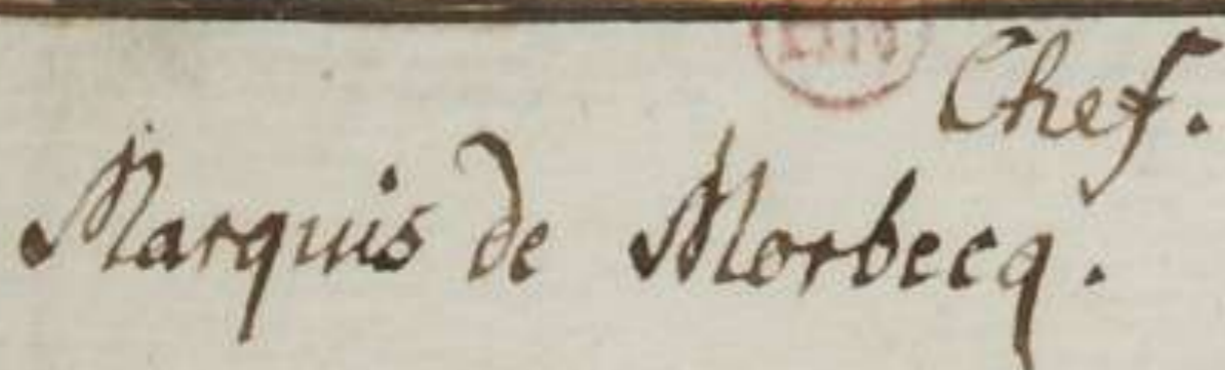 Chef.
Marquis de Morbecq.